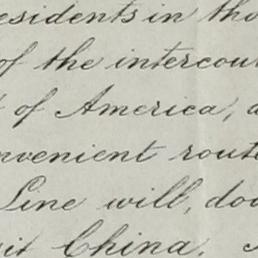 esidents in tho
of the intercour
t of America, a
nvenient route
Line will, dou
sit China.